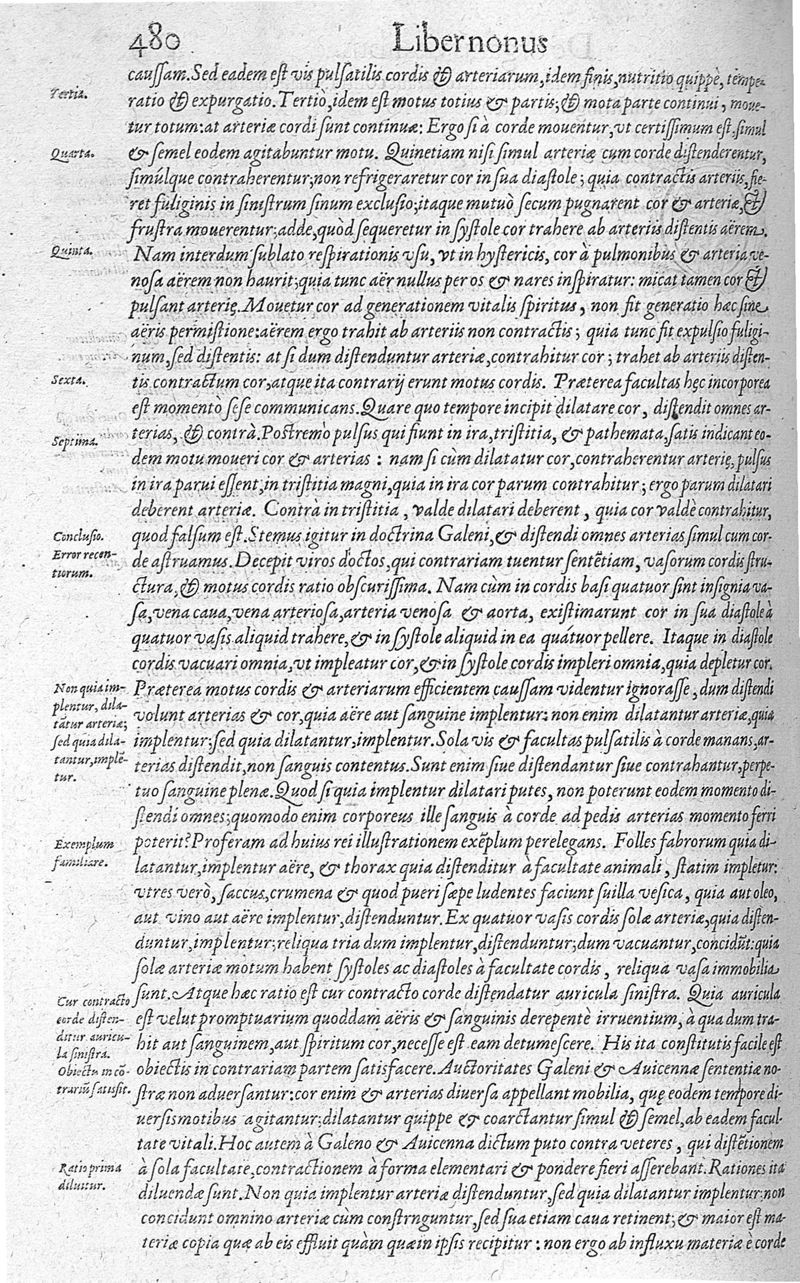 480
Liber nonus
caussam. Sed eadem est vis pulsatilis cordis & arteriarum, idem finis, nutritio quippè, tempe-
Tertia.
ratio & expurgatio. Tertiò, idem est motus totius & partis; & mota parte continui, moue-
tur totum: at arteriæ cordi sunt continuæ: Ergo si à corde mouentur, vt certissimum est, simul
Quarta.
& semel eodem agitabuntur motu. Quinetiam nisi simul arteriæ cum corde distenderentur,
simúlque contraherentur; non refrigeraretur cor in sua diastole; quia contractis arteriis, fie-
ret fuliginis in sinistrum sinum exclusio; itaque mutuò secum pugnarent cor & arteriæ, &
frustra mouerentur; adde, quòd sequeretur in systole cor trahere ab arteriis distentis aërem.
Quinta.
Nam interdum sublato respirationis vsu, vt in hystericis, cor à pulmonibus & arteria ve-
nosa aërem non haurit; quia tunc aër nullus per os & nares inspiratur: micat tamen cor &
pulsant arterię. Mouetur cor ad generationem vitalis spiritus, non fit generatio hæc sine
aëris permistione: aërem ergo trahit ab arteriis non contractis; quia tunc fit expulsio fuligi-
num, sed distentis: at si dum distenduntur arteriæ, contrahitur cor; trahet ab arteriis disten-
Sexta.
tis contractum cor, atque ita contrarij erunt motus cordis. Præterea facultas hęc incorporea
est momentò sese communicans. Quare quo tempore incipit dilatare cor, distendit omnes ar-
Septima.
terias, & contrà. Postremò pulsus qui fiunt in ira, tristitia, & pathemata, satis indicant eo-
dem motu moueri cor & arterias: nam si cùm dilatatur cor, contraherentur arterię, pulsus
in ira parui essent, in tristitia magni, quia in ira cor parum contrahitur; ergo parum dilatari
deberent arteriæ. Contrà in tristitia, valde dilatari deberent, quia cor valdè contrahitur,
Conclusio.
quod falsum est. Stemus igitur in doctrina Galeni, & distendi omnes arterias simul cum cor-
Error recen-
tiorum.
de astruamus. Decepit viros doctos, qui contrariam tuentur sentẽtiam, vasorum cordis stru-
ctura, & motus cordis ratio obscurissima. Nam cùm in cordis basi quatuor sint insignia va-
sa, vena caua, vena arteriosa, arteria venosa & aorta, existimarunt cor in sua diastole à
quatuor vasis aliquid trahere, & in systole aliquid in ea quatuor pellere. Itaque in diastole
cordis vacuari omnia, vt impleatur cor, & in systole cordis impleri omnia, quia depletur cor.
Non quia im-
plentur, dila-
tãtur arteriæ;
sed quia dila-
tantur, implẽ-
tur.
Præterea motus cordis & arteriarum efficientem caussam videntur ignorasse, dum distendi
volunt arterias & cor, quia aëre aut sanguine implentur: non enim dilatantur arteriæ, quia
implentur: sed quia dilatantur, implentur. Sola vis & facultas pulsatilis à corde manans, ar-
terias distendit, non sanguis contentus. Sunt enim siue distendantur siue contrahantur, perpe-
tuo sanguine plenæ. Quod si quia implentur dilatari putes, non poterunt eodem momento di-
stendi omnes; quomodo enim corporeus ille sanguis à corde ad pedis arterias momento ferri
Exemplum
familiare.
poterit? Proferam ad huius rei illustrationem exẽplum perelegans. Folles fabrorum quia di-
latantur, implentur aëre, & thorax quia distenditur à facultate animali, statim impletur:
vtres verò, saccus, crumena & quod pueri sæpe ludentes faciunt suilla vesica, quia aut oleo,
aut vino aut aëre implentur, distenduntur. Ex quatuor vasis cordis solæ arteriæ, quia disten-
duntur, implentur; reliqua tria dum implentur, distenduntur; dum vacuantur, concidũt: quia
solæ arteriæ motum habent systoles ac diastoles à facultate cordis, reliqua vasa immobilia
Cur contracto
corde disten-
ditur auricu-
la sinistra.
sunt. Atque hæc ratio est cur contracto corde distendatur auricula sinistra. Quia auricula
est velut promptuarium quoddam aëris & sanguinis derepentè irruentium, à qua dum tra-
hit aut sanguinem, aut spiritum cor, necesse est eam detumescere. His ita constitutis facile est
Obiectis in cõ-
trariũ satisfit.
obiectis in contrariam partem satisfacere. Auctoritates Galeni & Auicennæ sententiæ no-
stræ non aduersantur: cor enim & arterias diuersa appellant mobilia, quę eodem tempore di-
uersis motibus agitantur; dilatantur quippe & coarctantur simul & semel, ab eadem facul-
tate vitali. Hoc autem à Galeno & Auicenna dictum puto contra veteres, qui distẽtionem
Ratio prima
diluitur.
à sola facultate, contractionem à forma elementari & pondere fieri asserebant. Rationes ita
diluendæ sunt. Non quia implentur arteriæ distenduntur, sed quia dilatantur implentur: non
concidunt omnino arteriæ cùm constrnguntur, sed sua etiam caua retinent; & maior est ma-
teriæ copia quæ ab eis effluit quàm quæ in ipsis recipitur: non ergo ab influxu materiæ è corde